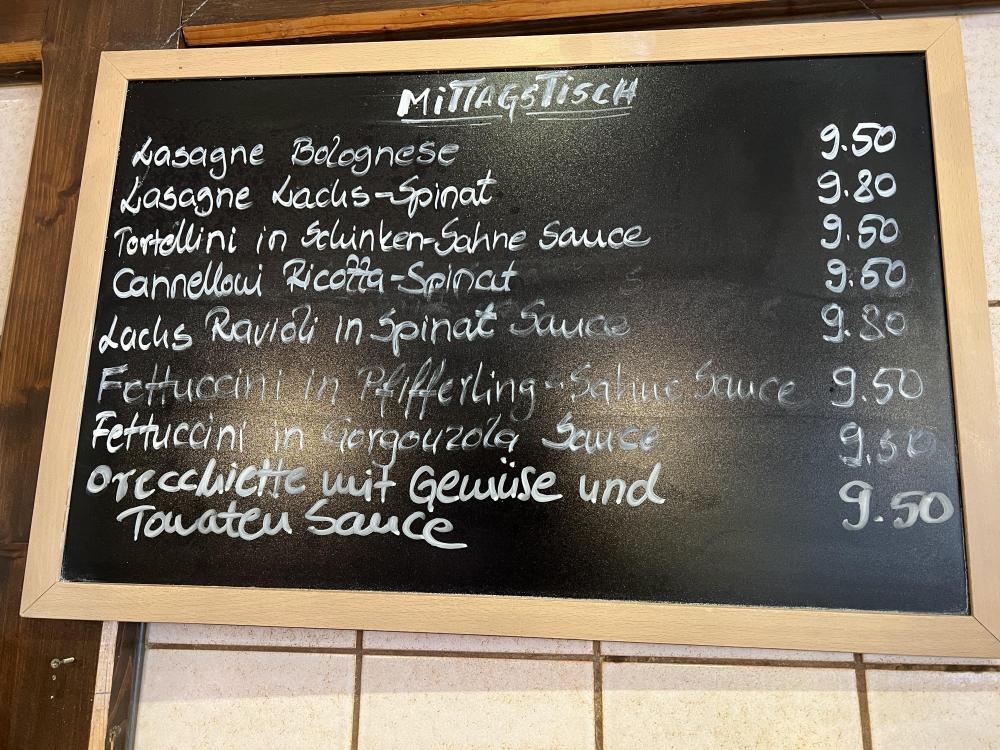 MITTAGSTISCH
Lasagne Bolognese 9.50
Lasagne Lachs-Spinat 9.80
Tortellini in Schinken-Sahne Sauce 9.50
Cannelloni Ricotta-Spinat 9.50
Lachs Ravioli in Spinat Sauce 9.80
Fettuccini in Pfifferling-Sahne Sauce 9.50
Fettuccini in Gorgonzola Sauce 9.50
Orecchiette mit Gemüse und 9.50
Tomaten Sauce